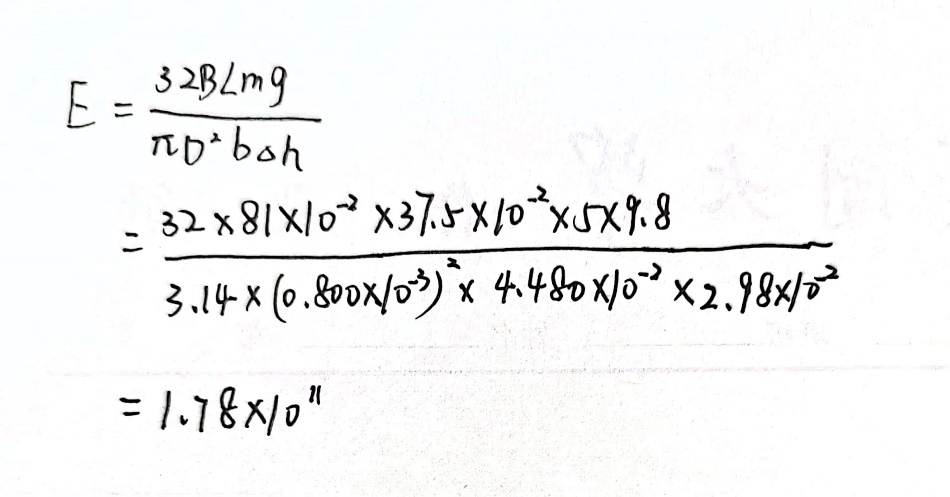 E = 32BLmg / πD²b△h
= 32×81×10⁻²×37.5×10⁻²×5×9.8 / 3.14×(0.800×10⁻³)²×4.480×10⁻²×2.98×10⁻²
= 1.78×10¹¹